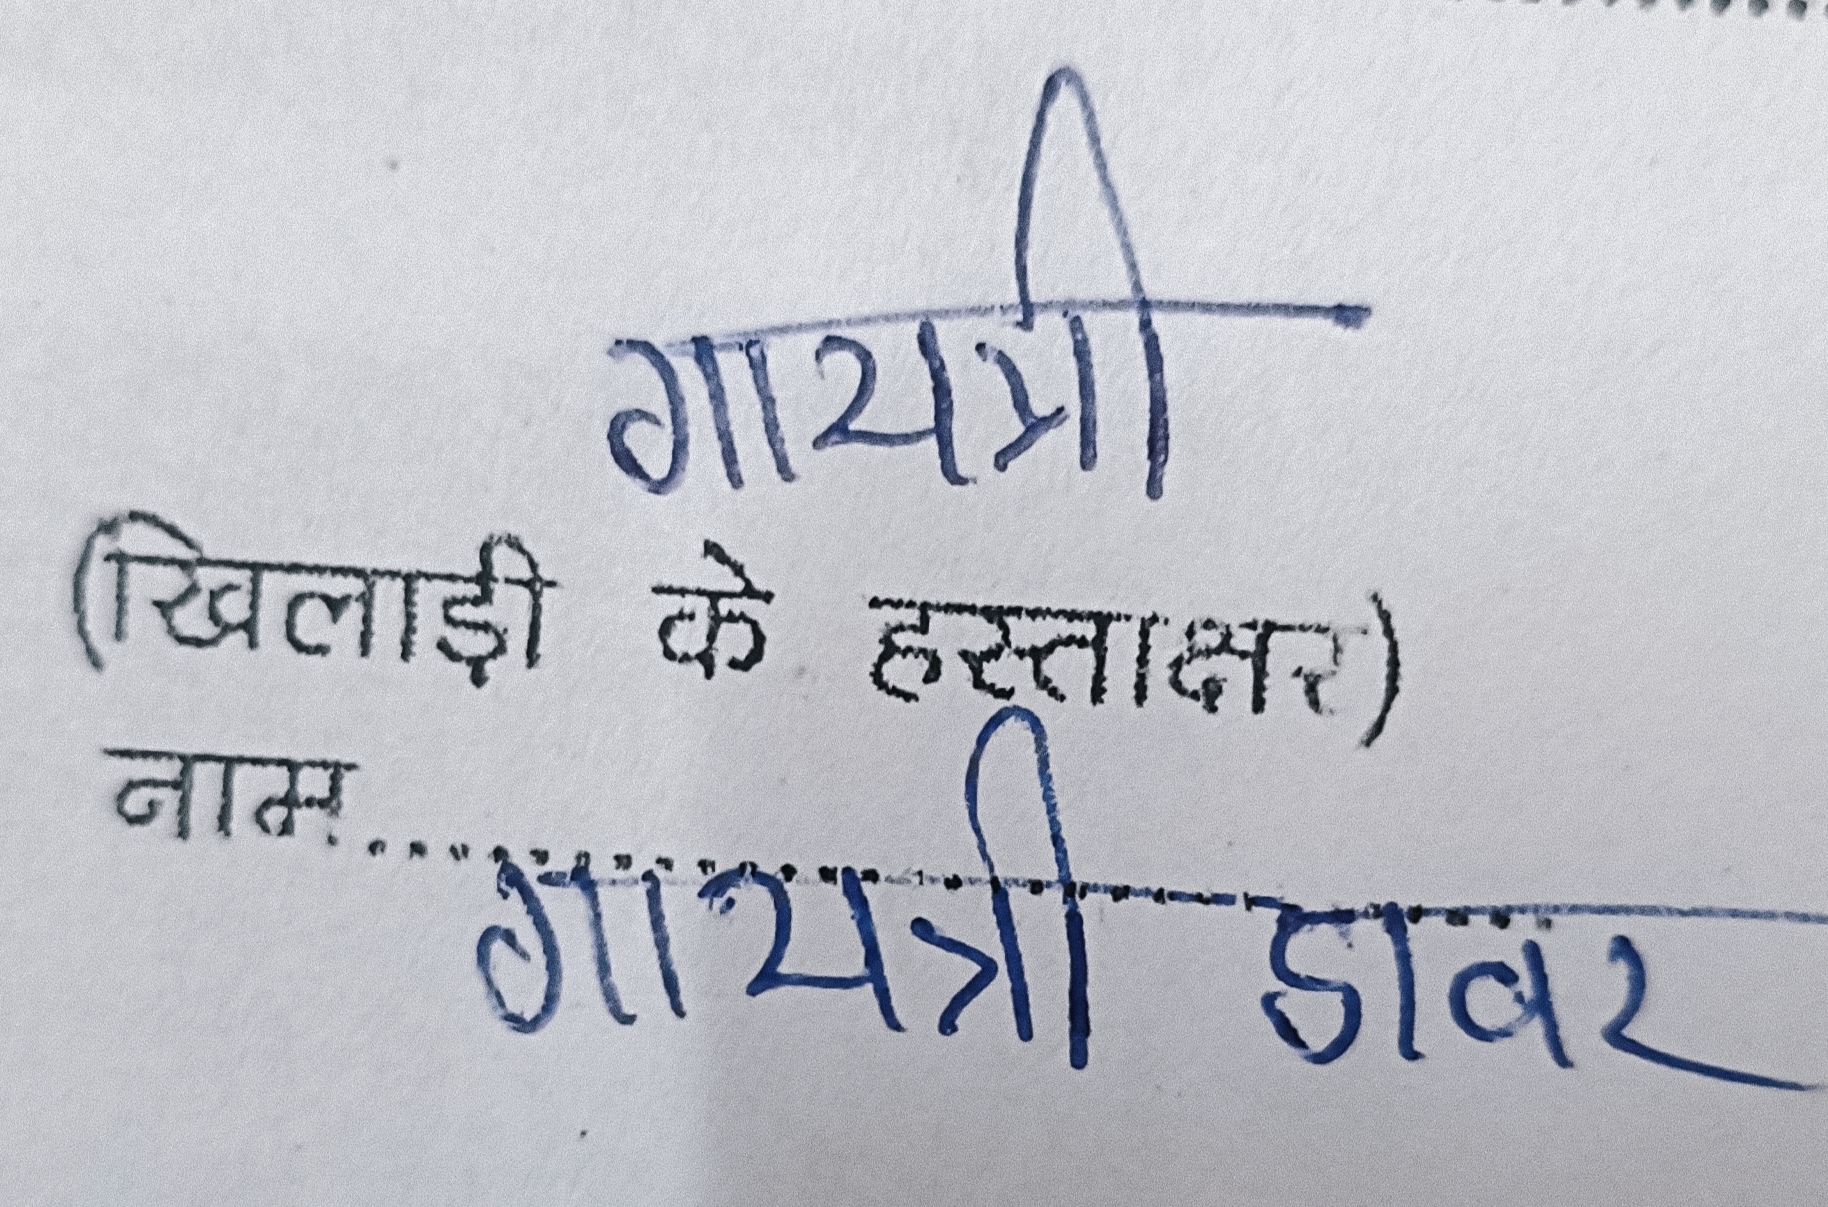 गायत्री
(खिलाड़ी के हस्ताक्षर)
नाम.......गायत्री डावर